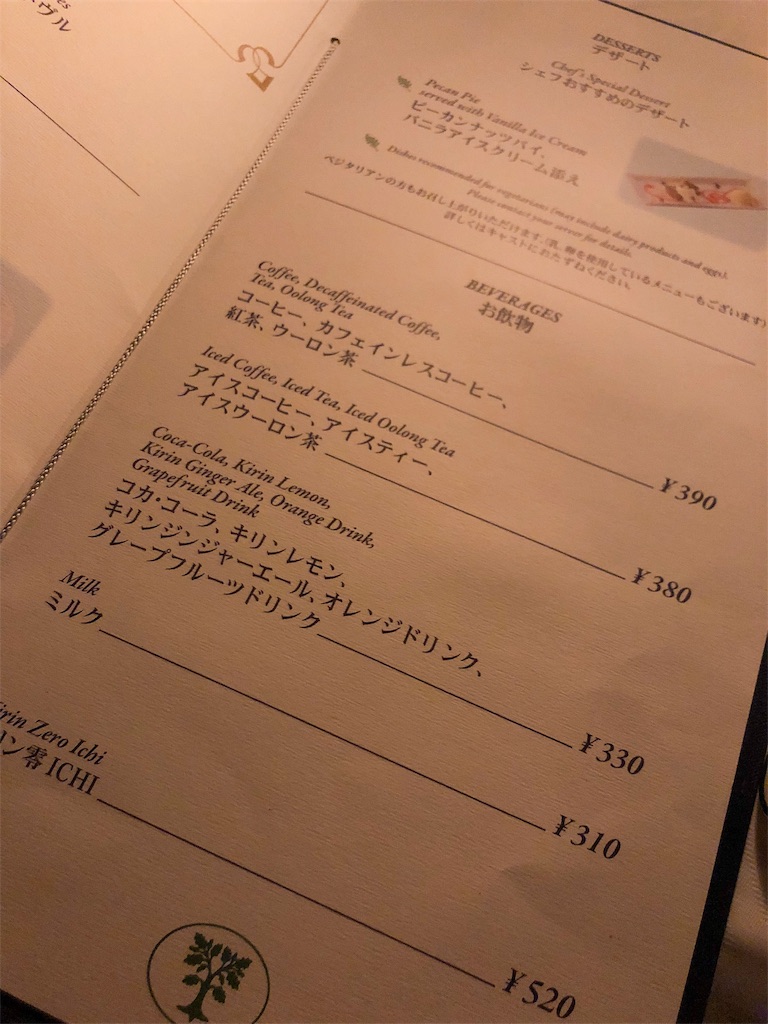 ヴル
DESSERTS
デザート
Chef's Special Dessert
シェフおすすめのデザート
Pecan Pie
served with Vanilla Ice Cream
ピーカンナッツパイ、
バニラアイスクリーム添え
Dishes recommended for vegetarians (may include dairy products and eggs).
Please contact your server for details.
ベジタリアンの方もお召し上がりいただけます。(乳、卵を使用しているメニューもございます)
詳しくはキャストにおたずねください。
BEVERAGES
お飲物
Coffee, Decaffeinated Coffee,
Tea, Oolong Tea
コーヒー、カフェインレスコーヒー、
紅茶、ウーロン茶 ¥390
Iced Coffee, Iced Tea, Iced Oolong Tea
アイスコーヒー、アイスティー、
アイスウーロン茶 ¥380
Coca-Cola, Kirin Lemon,
Kirin Ginger Ale, Orange Drink,
Grapefruit Drink
コカ・コーラ、キリンレモン、
キリンジンジャーエール、オレンジドリンク、
グレープフルーツドリンク ¥330
Milk
ミルク ¥310
irin Zero Ichi
リン零ICHI ¥520